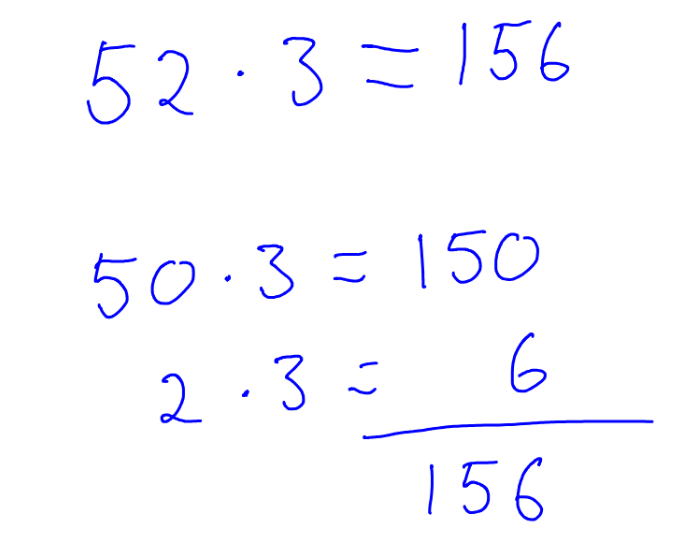 52 · 3 = 156
50 · 3 = 150
2 · 3 = 6
156